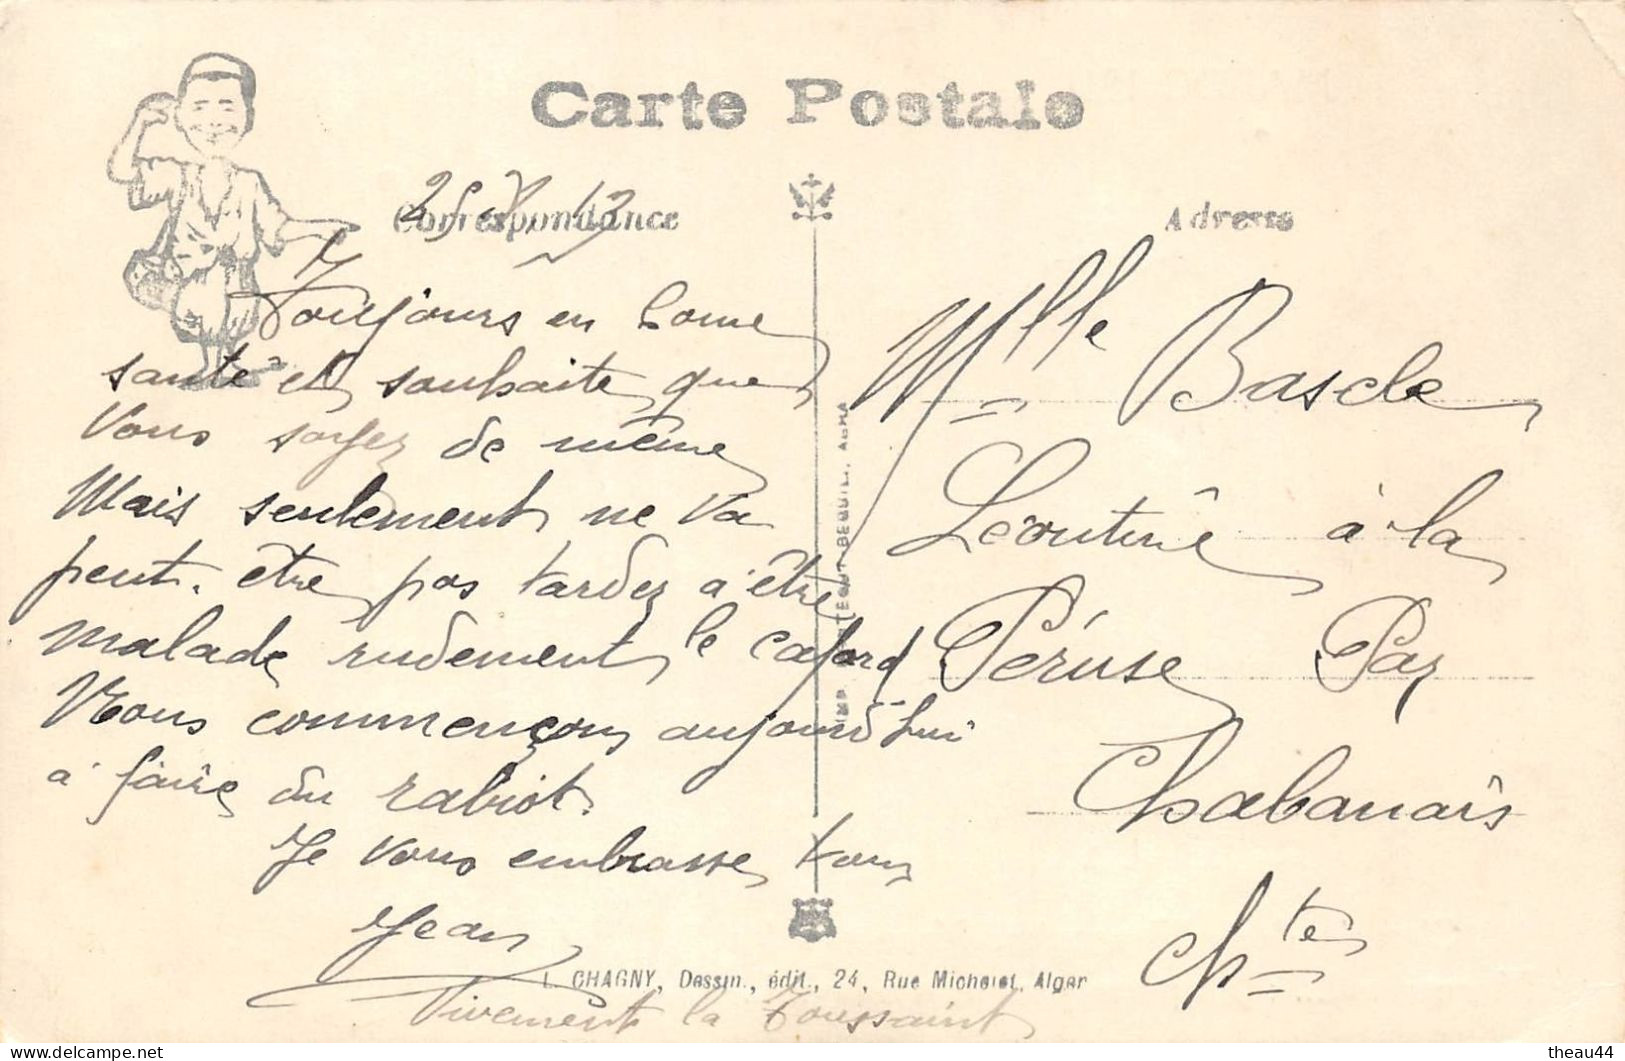 Carte Postale
Correspondance
Adresse
Toujours en bonne
santé et souhaite que
Vous soyez de même
Mais seulement ne va
peut-être pas tarder a être
malade rudement le cafard
Nous commençons aujourd'hui
à faire du rabiot.
Je Vous embrasse tous
Jean
Vivement la Toussaint
L. CHAGNY, Dessin., édit., 24, Rue Michelet, Alger
Mlle Bascle
Léontine à la
Péruse Par
Chabanais
Chte
theau44